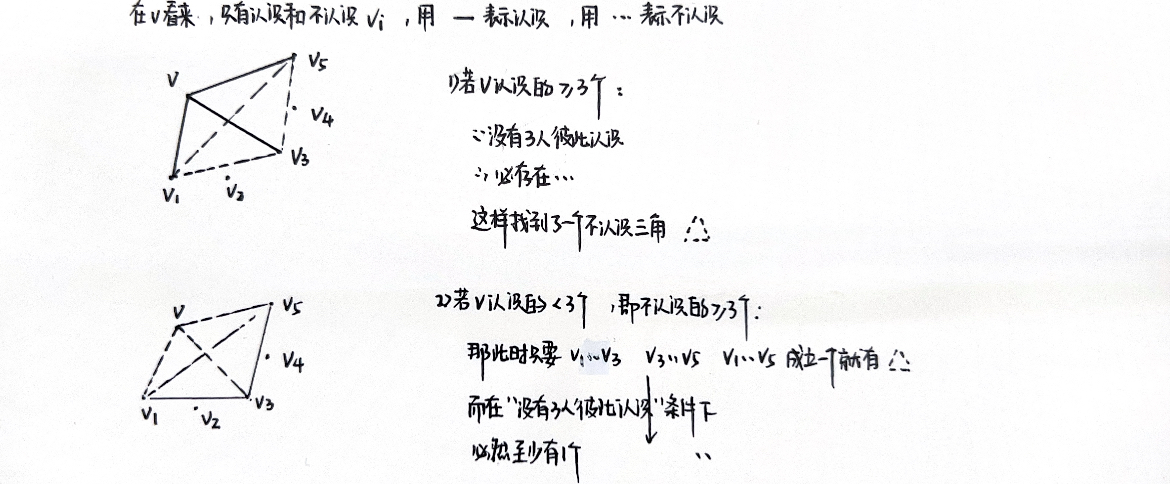 在v看来，只有认识和不认识 Vi ，用 — 表示认识 ，用 … 表示不认识
V
V5
V4
V3
V1
V2
1)若V认识的≥3个：
∵没有3人彼此认识
∴必存在…
这样找到了一个不认识三角
V
V5
V4
V3
V1
V2
2)若V认识的<3个 ,即不认识的≥3个：
那此时只要 V1…V3 V3…V5 V1…V5 成立一个就有
而在"没有3人彼此认识"条件下
必然至少有1个